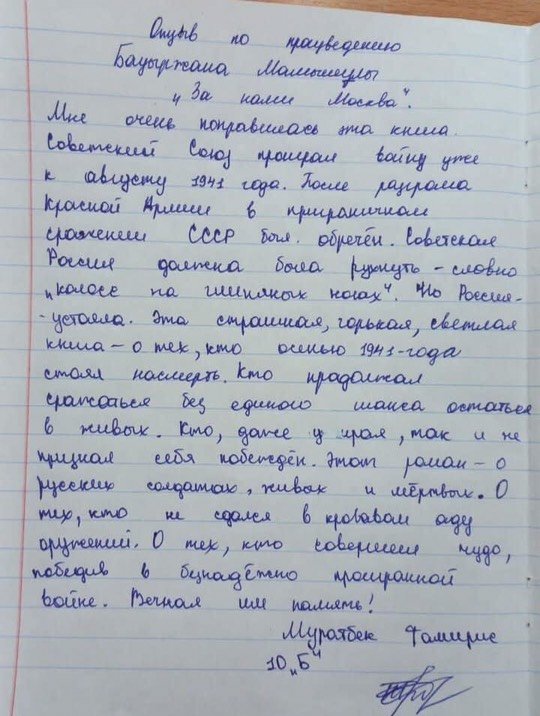 Отзыв по произведению
Бауыржана Момышулы
„За нами Москва".
Мне очень понравилась эта книга.
Советский Союз проиграл войну уже
к августу 1941 года. После разгрома
Красной Армии в приграничном
сражении СССР был обречён. Советская
Россия должна была рухнуть - словно
„колосс на глиняных ногах". Но Россия-
-устояла. Эта страшная, горькая, светлая
книга - о тех, кто осенью 1941-года
стоял насмерть. Кто продолжал
сражаться без единого шанса остаться
в живых. Кто, даже умирая, так и не
признал себя побеждён. Этот роман - о
русских солдатах, живых и мёртвых. О
тех, кто не сдался в кровавом аду
окружений. О тех, кто совершил чудо,
победив в безнадёжно проигранной
войне. Вечная им память!
Муратбек Томирис
10 „Б"